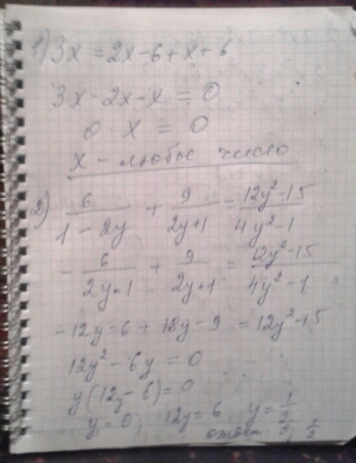 1) 3x = 2x - 6 + x + 6
3x - 2x - x = 0
0 · x = 0
x - любое число
2) 6/(1 - 2y) + 9/(2y+1) = (12y² - 15)/(4y² - 1)
- 6/(2y - 1) + 9/(2y+1) = (12y² - 15)/(4y² - 1)
-12y - 6 + 18y - 9 = 12y² - 15
12y² - 6y = 0
y(12y - 6) = 0
y = 0; 12y = 6, y = 1/2
ответ: 0; 1/2